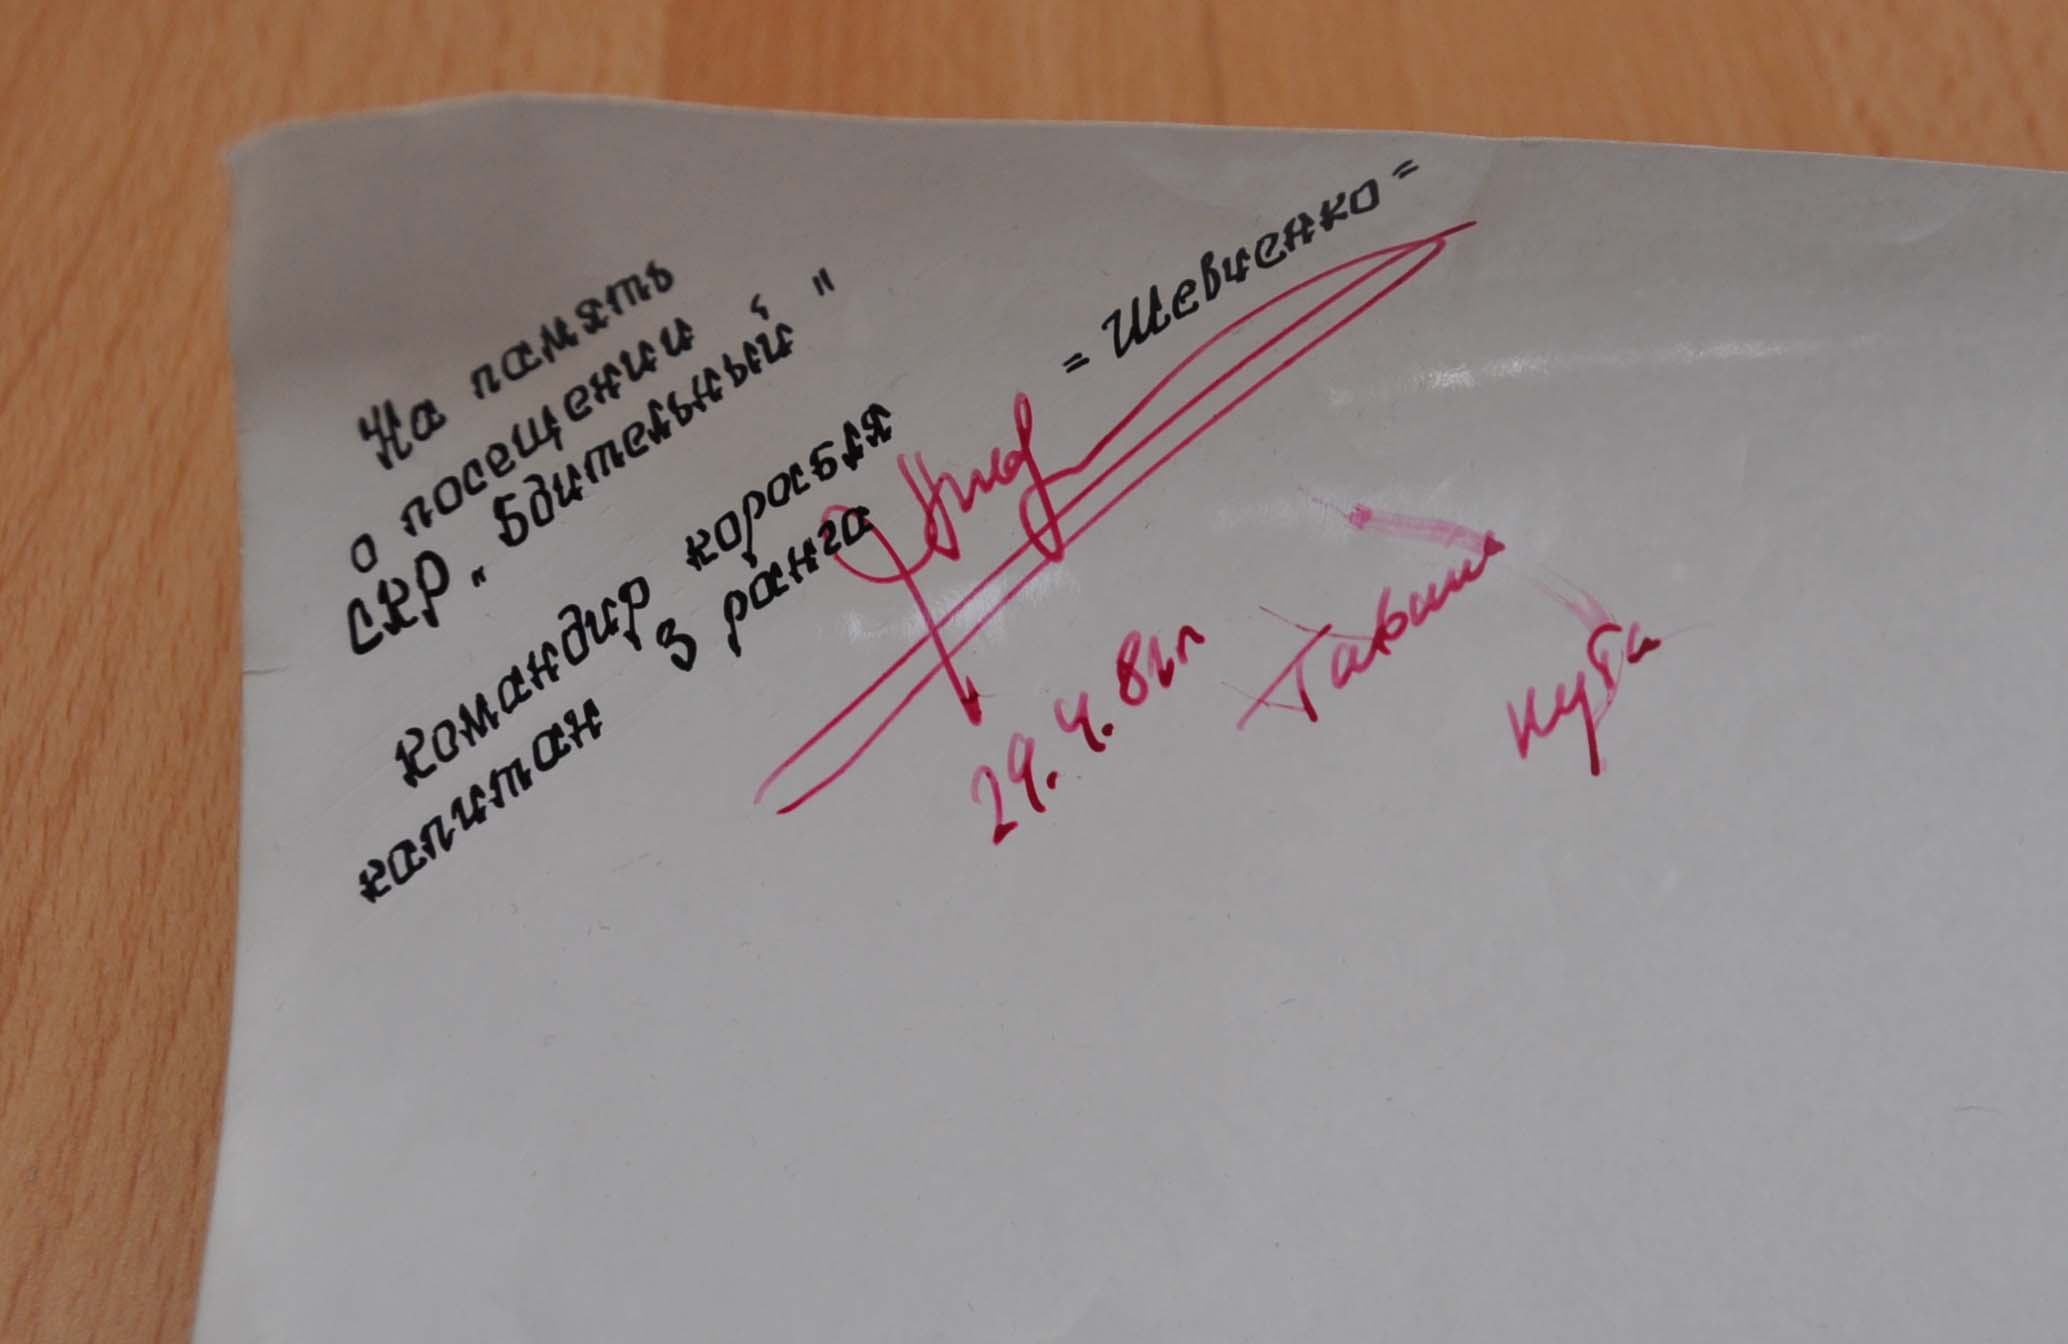 На память
о посещении
СКР „Бдительный"
Командир корабля
капитан 3 ранга
= Шевченко =
29.4.81г
Гавана
Куба